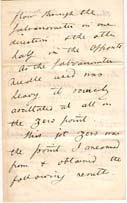 flow through the
Galvanometer in one
direction & the other
half in the opposite
As the Galvanometer
needle used was
heavy it scarcely
oscillated at all on
the zero point
This jet zero was
the point I assumed
from & obtained the
following results